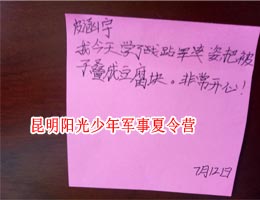 我今天学了战站军姿把被
子叠成豆腐块。非常开心！
昆明阳光少年军事夏令营
7月12日